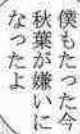 僕もたった今
秋葉が嫌いに
なったよ